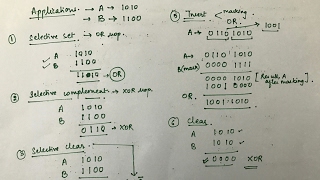 Applications → A → 1010
→ B → 1100
① Selective Set → OR uop.
A 1010
B 1100
1110 → OR
② Selective complement → XOR uop
A 1010
B 1100
0110 → XOR
③ Selective clear
A 1010
B 1100
⑤ Insert → masking
OR → 1001
A → 0110 1010
A → 0110 1010
B (mask) 0000 1111
0000 1010 [Result A after masking]
1001 0000
OR: 1001 1010
⑥ Clear
A 1010
B 1010
0000 XOR